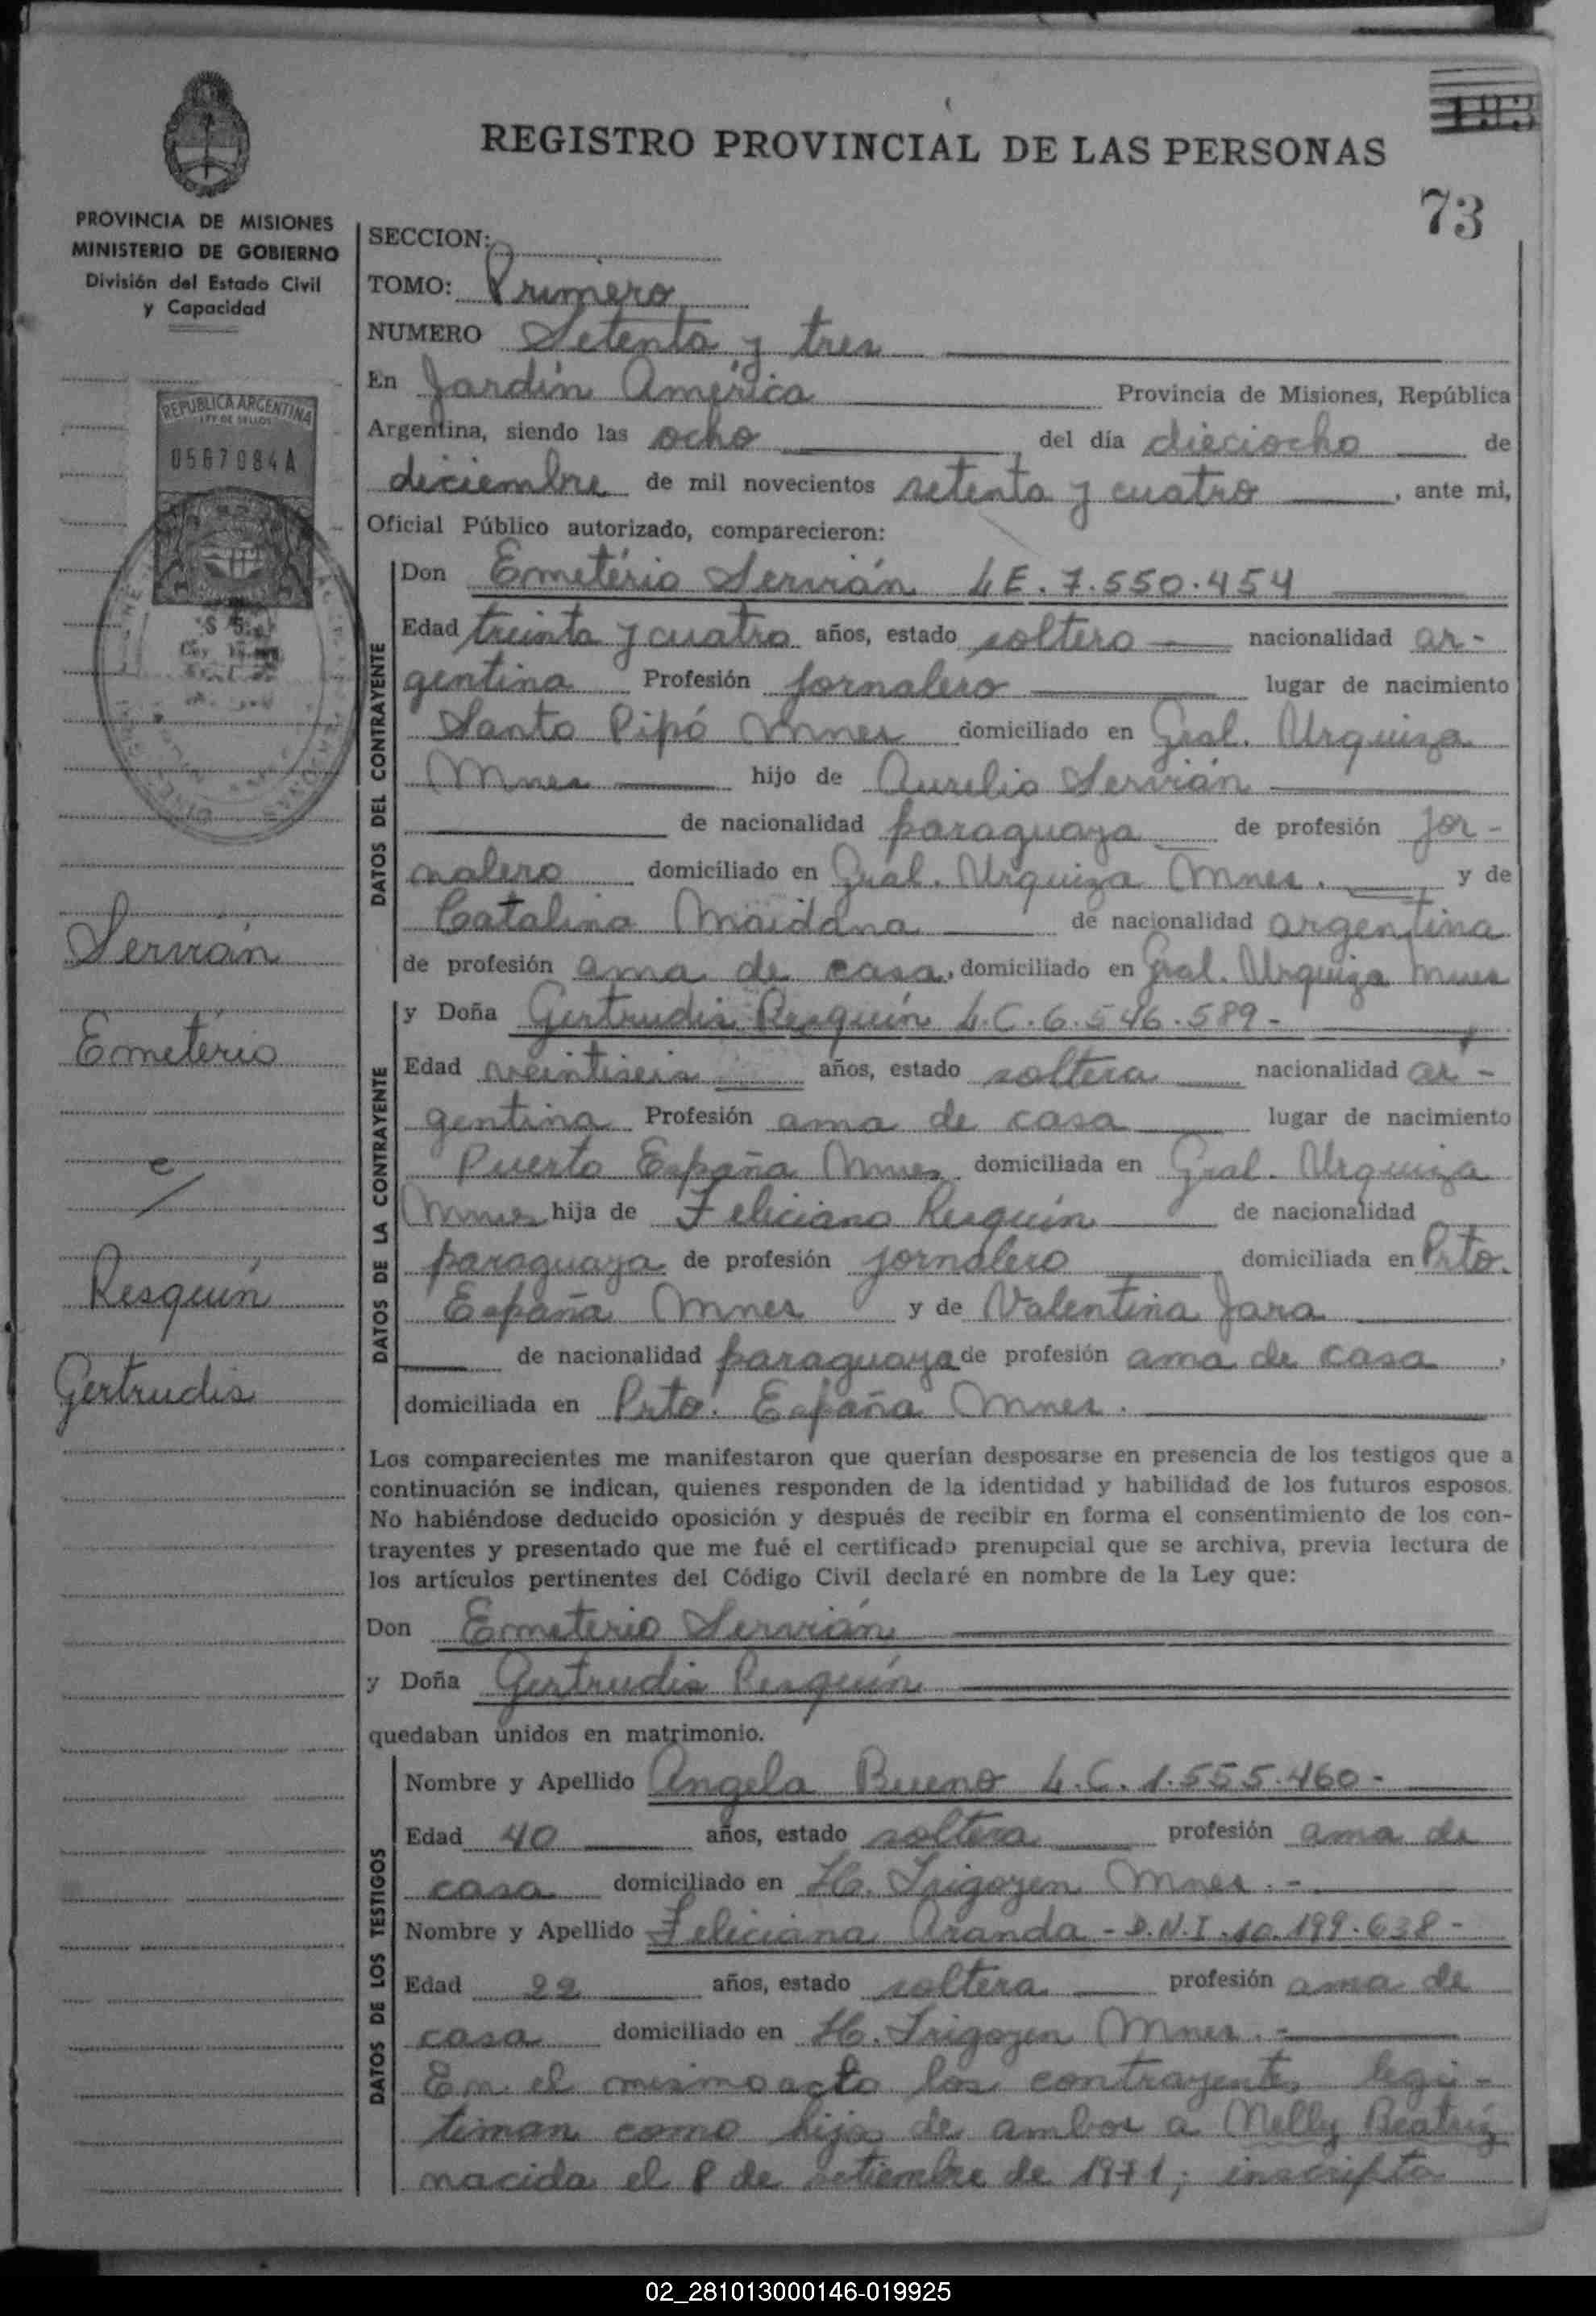 REGISTRO PROVINCIAL DE LAS PERSONAS
73
PROVINCIA DE MISIONES
MINISTERIO DE GOBIERNO
División del Estado Civil
y Capacidad
REPUBLICA ARGENTINA
LEY DE SELLOS
0567084A
Servián
Emetério
e/
Resquin
Gertrudis
SECCION:
TOMO: Primero
NUMERO Setenta y tres
En Jardín América Provincia de Misiones, República
Argentina, siendo las ocho del día dieciocho de
diciembre de mil novecientos setenta y cuatro, ante mi,
Oficial Público autorizado, comparecieron:
DATOS DEL CONTRAYENTE
Don Emetério Servián L.E. 7.550.454
Edad treinta y cuatro años, estado soltero nacionalidad ar-
gentina Profesión jornalero lugar de nacimiento
Santo Pipó Mnes domiciliado en Gral. Urquiza
Mnes hijo de Aurelio Servián
de nacionalidad paraguaya de profesión jor-
nalero domiciliado en Gral. Urquiza Mnes. y de
Catalina Maidana de nacionalidad argentina
de profesión ama de casa, domiciliado en Gral. Urquiza Mnes
DATOS DE LA CONTRAYENTE
y Doña Gertrudis Resquín L.C. 6.546.589-
Edad veintiseis años, estado soltera nacionalidad ar-
gentina Profesión ama de casa lugar de nacimiento
Puerto España Mnes domiciliada en Gral. Urquiza
Mnes hija de Feliciano Resquín de nacionalidad
paraguaya de profesión jornalero domiciliada en Prto.
España Mnes y de Valentina Jara
de nacionalidad paraguaya de profesión ama de casa,
domiciliada en Prto. España Mnes.
Los comparecientes me manifestaron que querían desposarse en presencia de los testigos que a
continuación se indican, quienes responden de la identidad y habilidad de los futuros esposos.
No habiéndose deducido oposición y después de recibir en forma el consentimiento de los con-
trayentes y presentado que me fué el certificado prenupcial que se archiva, previa lectura de
los artículos pertinentes del Código Civil declaré en nombre de la Ley que:
Don Emeterio Servián
y Doña Gertrudis Resquín
quedaban unidos en matrimonio.
DATOS DE LOS TESTIGOS
Nombre y Apellido Angela Bueno L.C. 1.555.460-
Edad 40 años, estado soltera profesión ama de
casa domiciliado en H. Irigoyen Mnes.-
Nombre y Apellido Feliciana Aranda - D.N.I. 10.199.638-
Edad 22 años, estado soltera profesión ama de
casa domiciliado en H. Irigoyen Mnes.-
En el mismo acto los contrayentes legi-
timan como hija de ambos a Nelly Beatriz
nacida el 8 de setiembre de 1971; inscripta
02_281013000146-019925